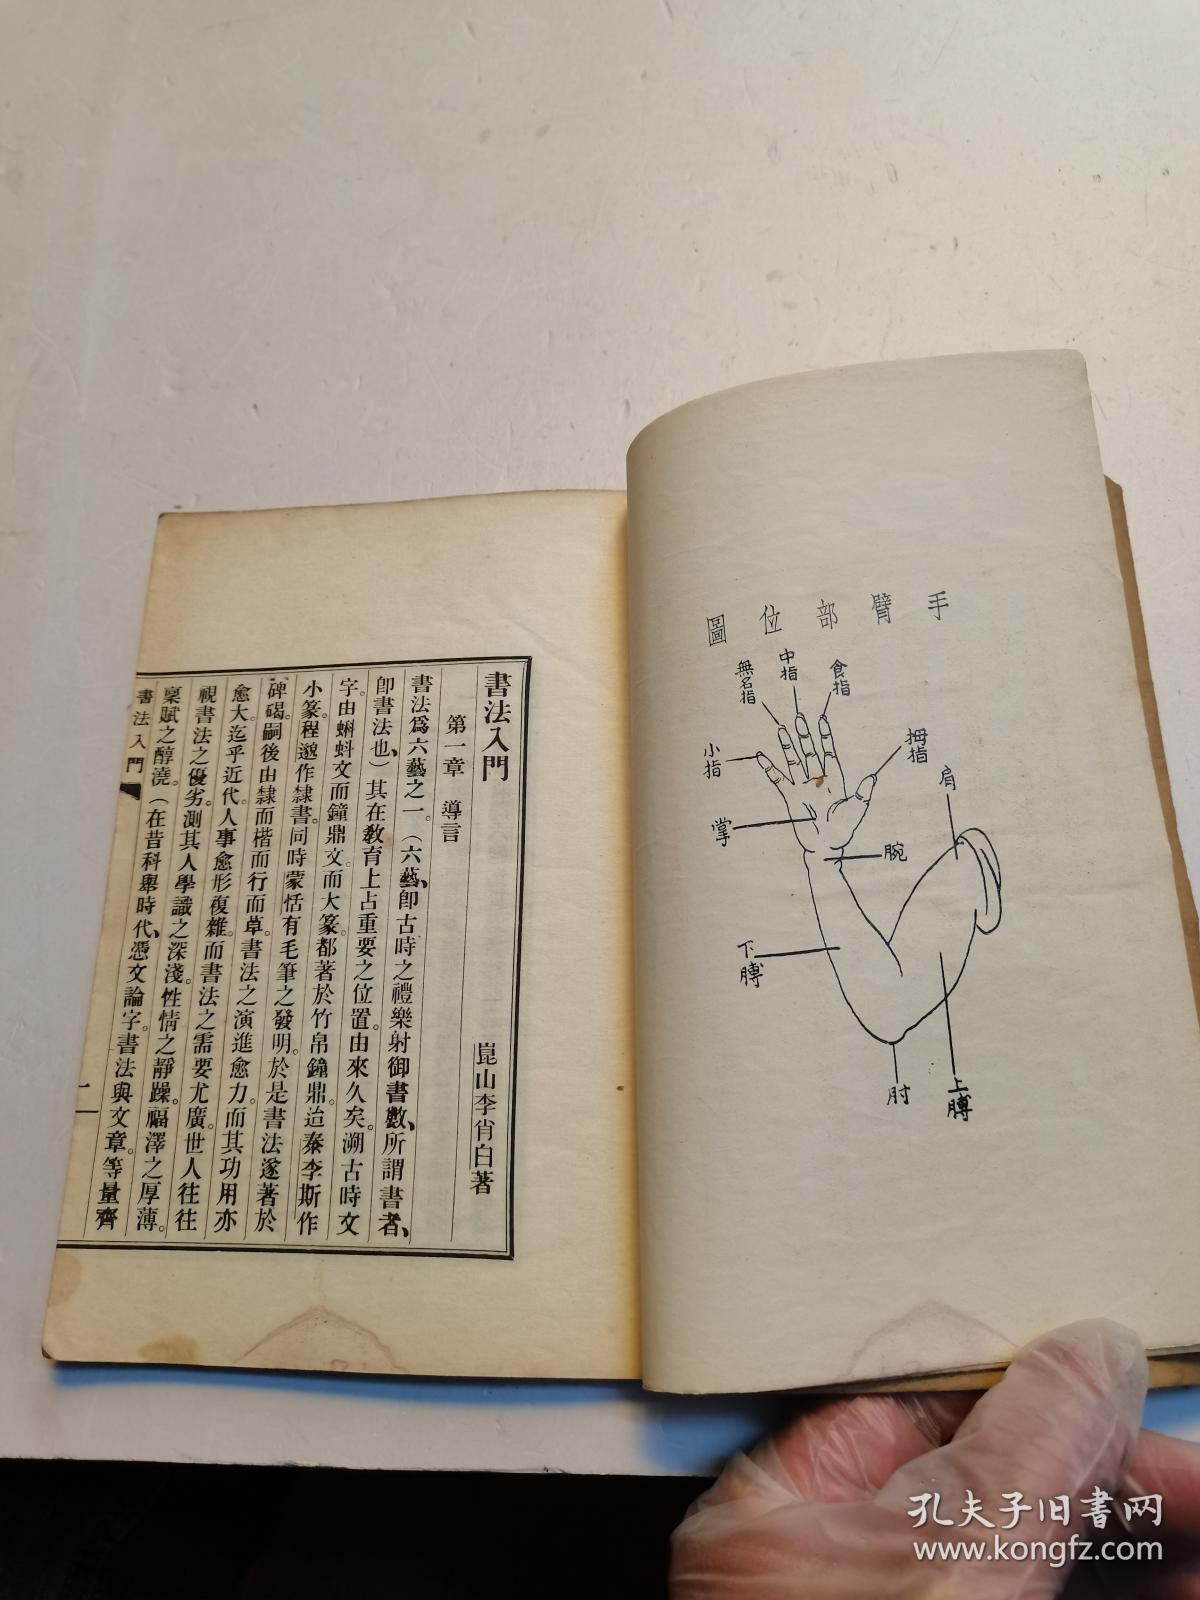 手臂部位圖
食指
中指
無名指
小指
拇指
肩
掌
腕
下膊
上膊
肘
書法入門
第一章 導言
崑山李肖白著
書法爲六藝之一。(六藝、卽古時之禮樂射御書數、所謂書者、
卽書法也、)其在教育上占重要之位置。由來久矣。溯古時文
字。由蝌蚪文而鐘鼎文。而大篆。都著於竹帛鐘鼎。迨秦李斯作
小篆。程邈作隸書。同時蒙恬有毛筆之發明。於是書法遂著於
碑碣。嗣後由隸而楷而行而草。書法之演進愈力。而其功用亦
愈大。迄乎近代。人事愈形複雜。而書法之需要尤廣。世人往往
視書法之優劣。測其人學識之深淺。性情之靜躁。福澤之厚薄。
稟賦之醇澆。(在昔科舉時代、憑文論字。書法與文章。等量齊
書法入門
孔夫子旧书网
www.kongfz.com